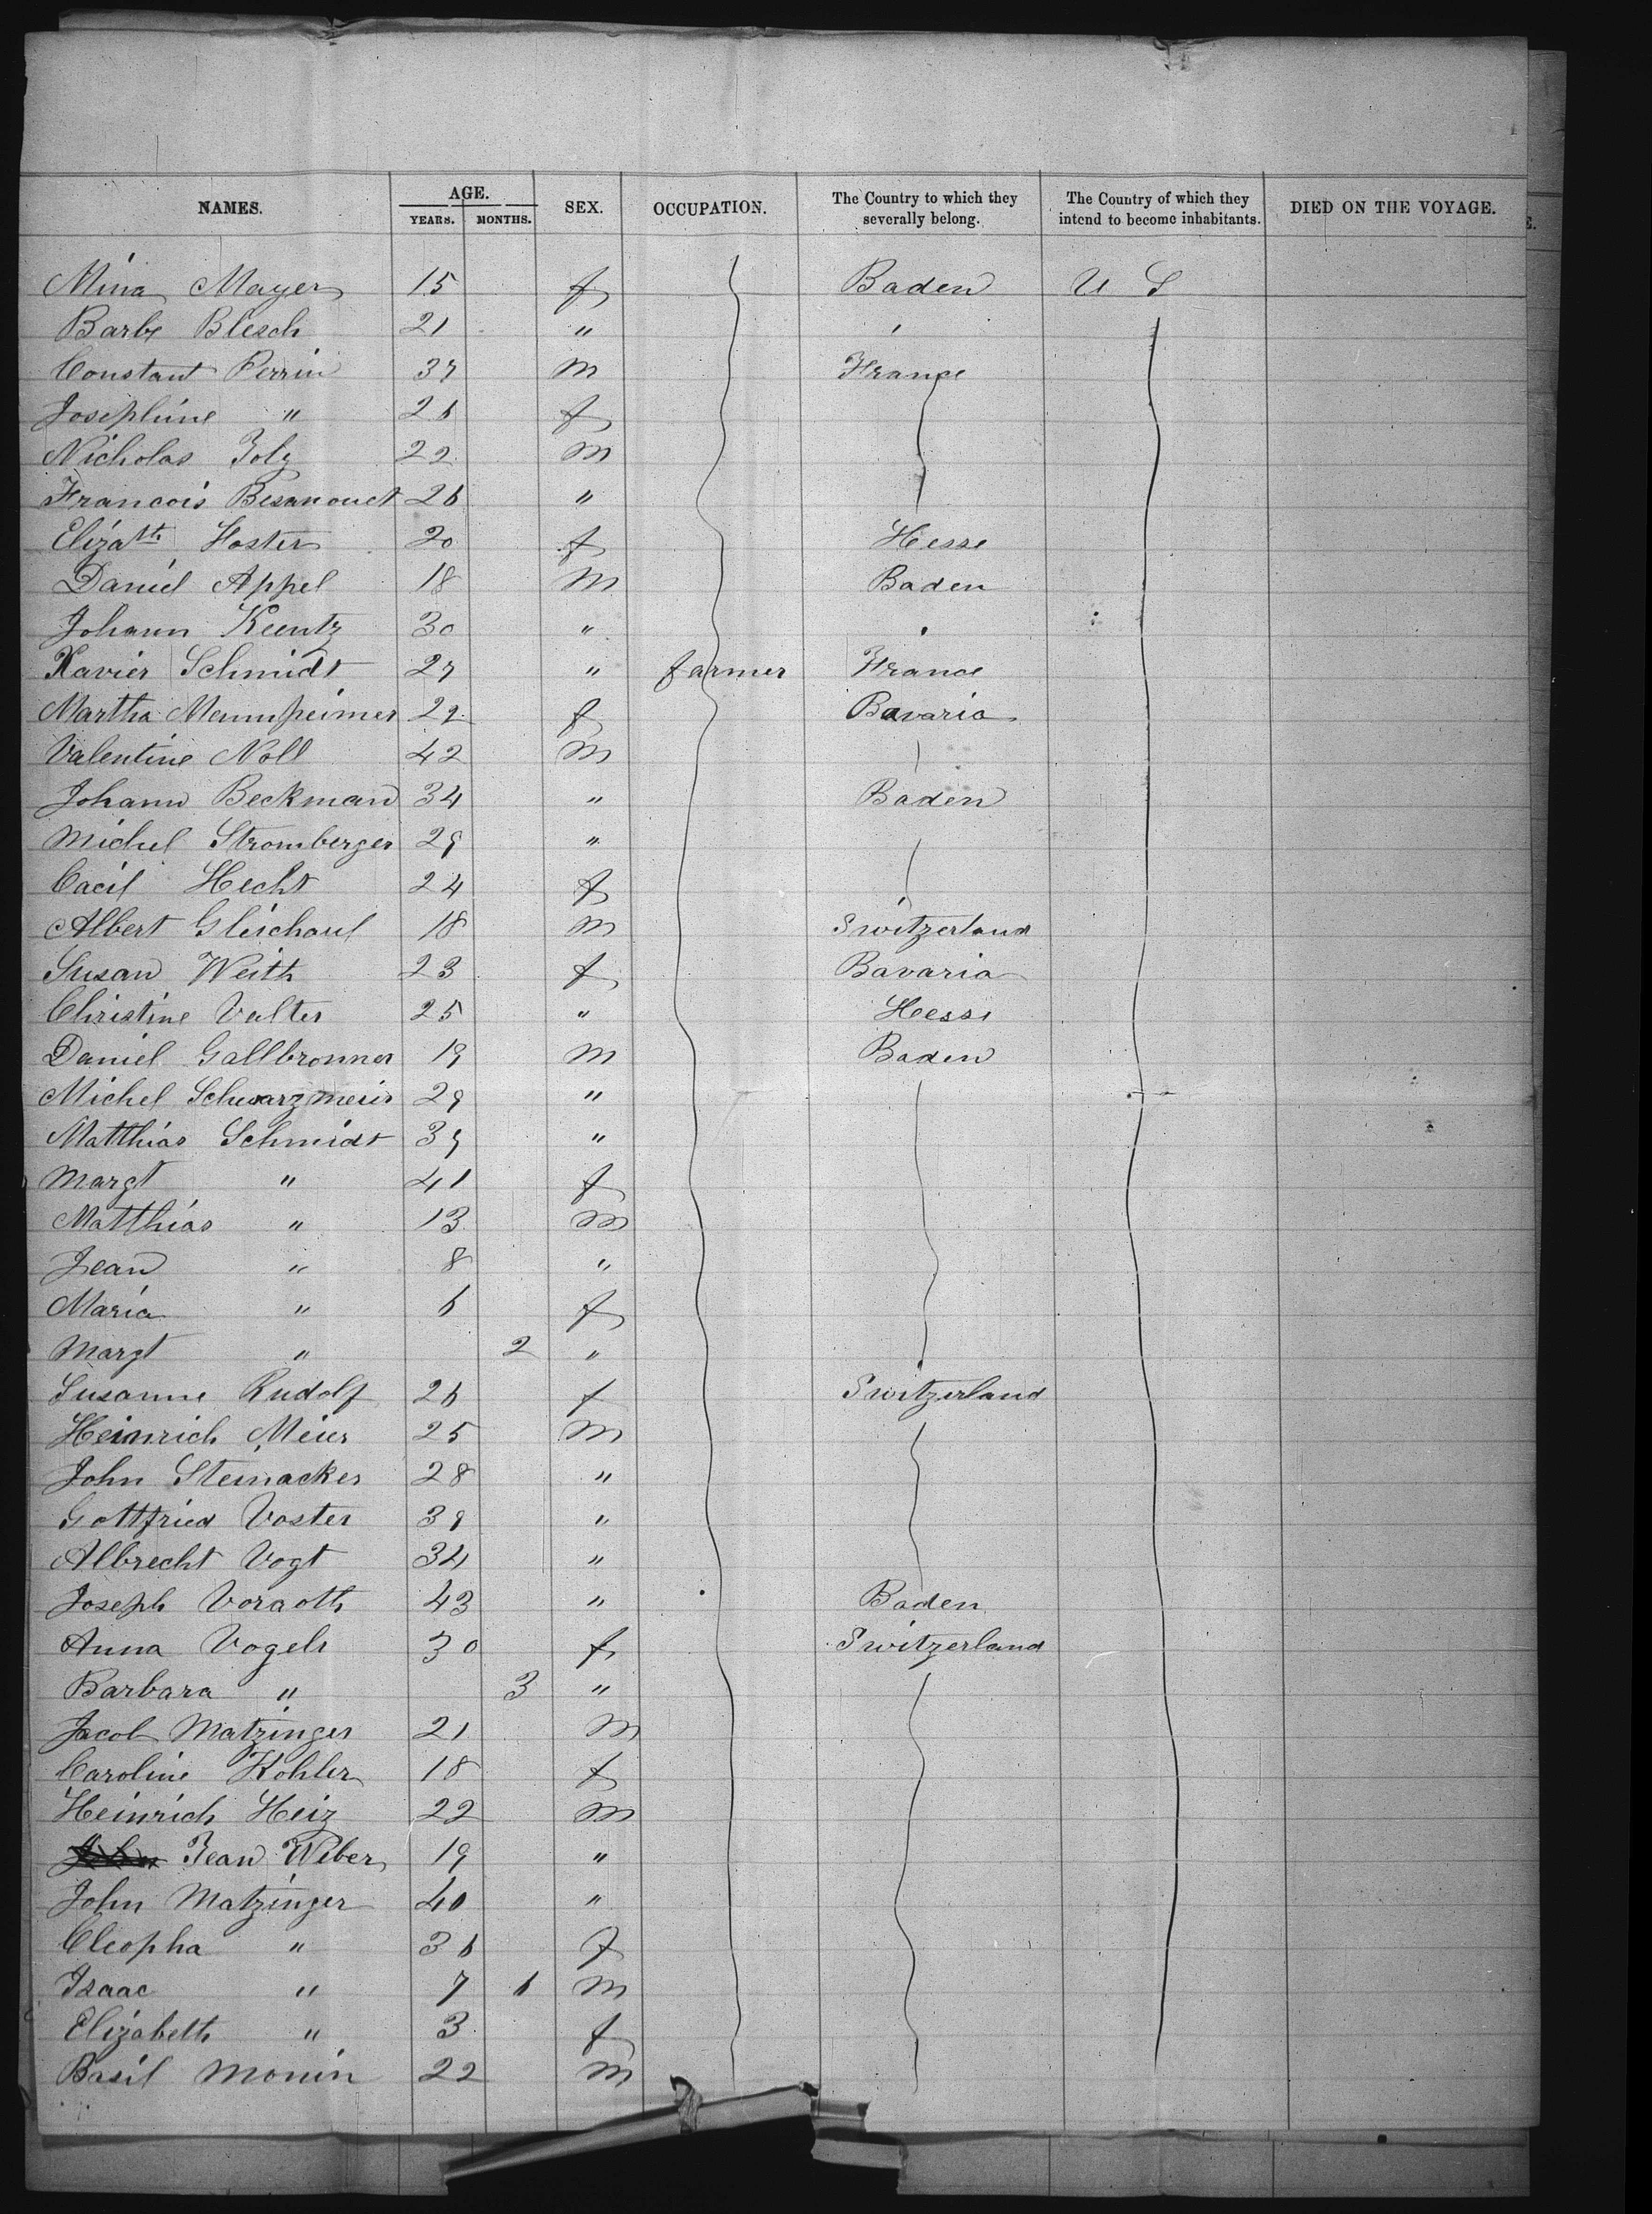 NAMES. AGE. SEX. OCCUPATION. The Country to which they severally belong. The Country of which they intend to become inhabitants. DIED ON THE VOYAGE.
YEARS. MONTHS.
Mina Mayer 15 f Baden U S
Barbe Blesch 21 " '
Constant Perrin 37 m France
Josephine " 26 f
Nicholas Joly 22 m
Francois Besanouet 26 "
Elizath Hoster 20 f Hesse
Daniel Appel 18 m Baden
Johann Keentz 30 "
Xavier Schmidt 27 " farmer France
Martha 22 f Bavaria
Valentine Noll 42 m
Johann Beckman 34 " Baden
Michel Stromberger 29 "
Cacil Hecht 24 f
Albert 18 m Switzerland
Susan Weith 23 f Bavaria
Christine Valter 25 " Hesse
Daniel Gallbronner 19 m Baden
Michel Schwarzmeier 29 "
Matthias Schmidt 39 "
Margt " 41 f
Matthias " 13 m
Jean " 8 "
Maria " 6 f
Margt " 2 "
Susanne Rudolf 26 f Switzerland
Heinrich Meier 25 m
John Steinacker 28 "
Gottfried Voster 39 "
Albrecht Vogt 34 "
Joseph Voraoth 43 " Baden
Anna Vogele 30 f Switzerland
Barbara " 3 "
Jacob Matzinger 21 m
Caroline Kohler 18 f
Heinrich Heiz 22 m
Jean Weber 19 "
John Matzinger 40 "
Cleopha " 36 f
Isaac " 7 6 m
Elizabeth " 3 f
Basil Monin 22 m